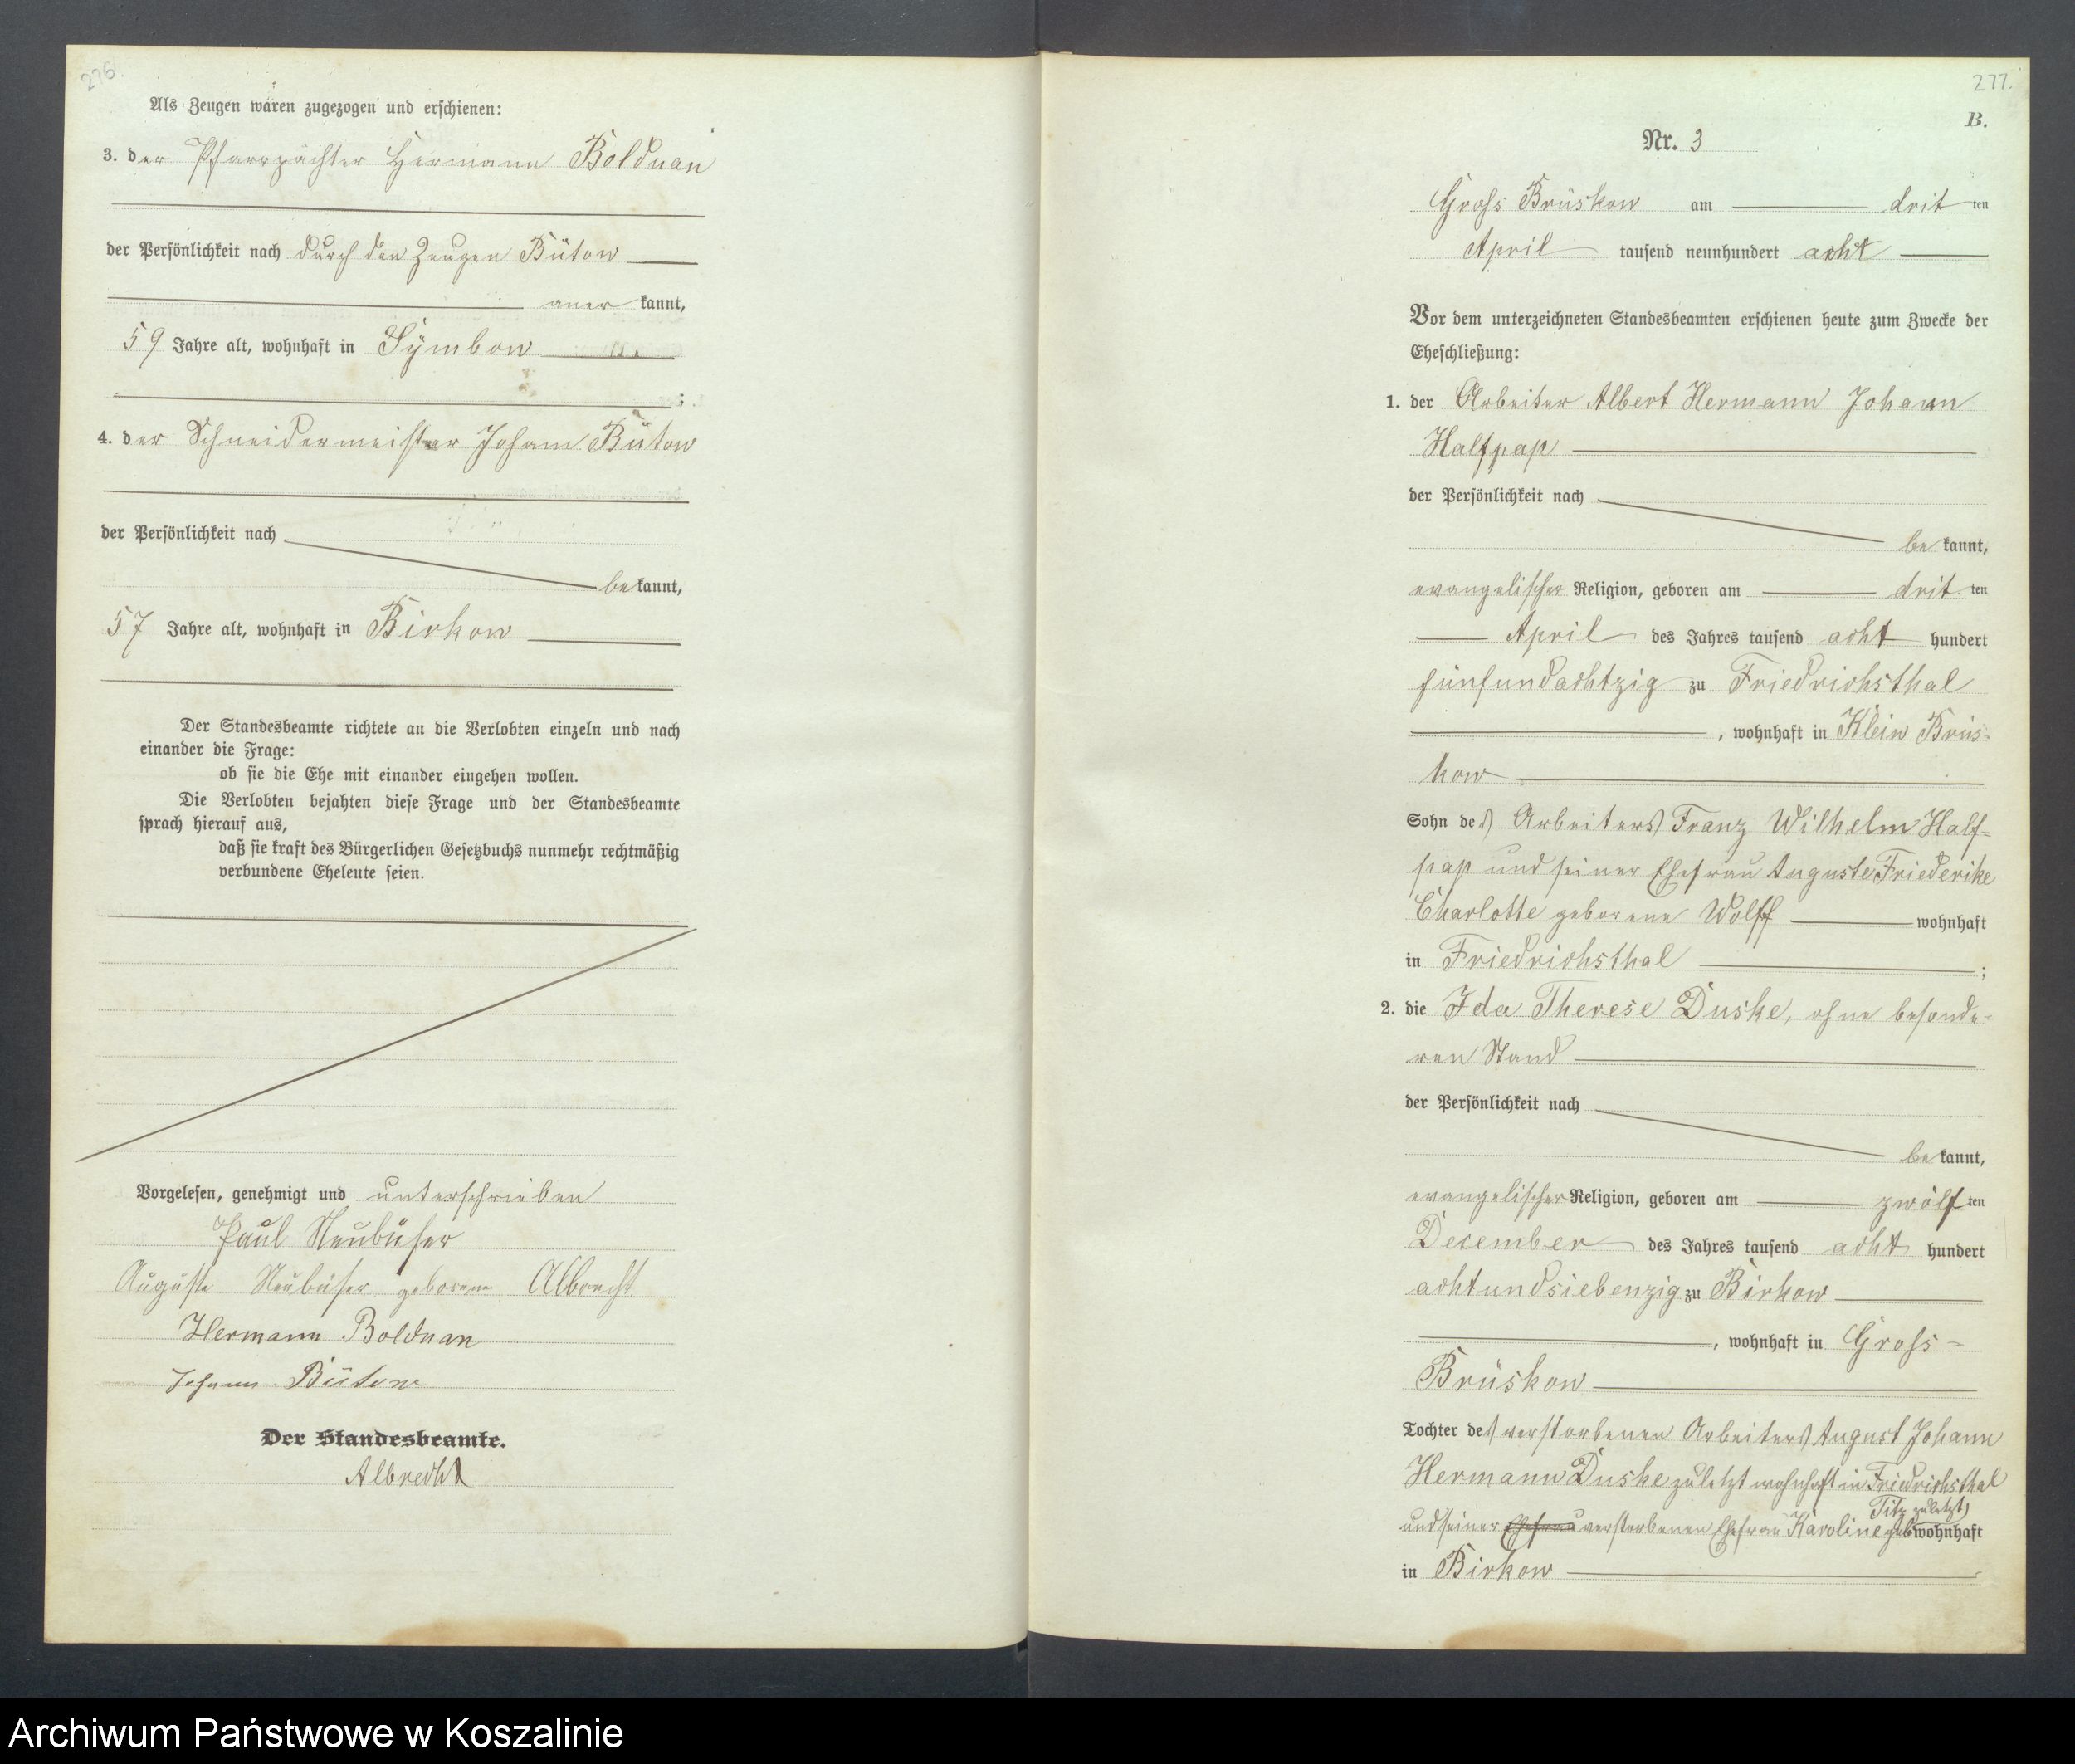 276.
Als Zeugen waren zugezogen und erschienen:
3. der Pfarrpächter Hermann Bolduan
der Persönlichkeit nach durch den Zeugen Bütow
aner kannt,
59 Jahre alt, wohnhaft in Symbow
;
4. der Schneidermeister Johann Bütow
der Persönlichkeit nach
be kannt,
57 Jahre alt, wohnhaft in Birkow
Der Standesbeamte richtete an die Verlobten einzeln und nach
einander die Frage:
ob sie die Ehe mit einander eingehen wollen.
Die Verlobten bejahten diese Frage und der Standesbeamte
sprach hierauf aus,
daß sie kraft des Bürgerlichen Gesetzbuchs nunmehr rechtmäßig
verbundene Eheleute seien.
Vorgelesen, genehmigt und unterschrieben
Paul Neubüser
Auguste Neubüser geborene Albrecht
Hermann Bolduan
Johann Bütow
Der Standesbeamte.
Albrecht
277.
B.
Nr. 3
Gross Brüskow am drit ten
April tausend neunhundert acht
Vor dem unterzeichneten Standesbeamten erschienen heute zum Zwecke der
Eheschließung:
1. der Arbeiter Albert Hermann Johann
Halfpap
der Persönlichkeit nach
be kannt,
evangelischer Religion, geboren am drit ten
April des Jahres tausend acht hundert
fünfundachtzig zu Friedrichsthal
, wohnhaft in Klein Brüs-
kow
Sohn des Arbeiters Franz Wilhelm Half-
pap und seiner Ehefrau Auguste Friederike
Charlotte geborene Wolff wohnhaft
in Friedrichsthal ;
2. die Ida Therese Duske, ohne besonde-
ren Stand
der Persönlichkeit nach
be kannt,
evangelischer Religion, geboren am zwölf ten
December des Jahres tausend acht hundert
achtundsiebenzig zu Birkow
, wohnhaft in Gross-
Brüskow
Tochter des verstorbenen Arbeiters August Johann
Hermann Duske zuletzt wohnhaft in Friedrichsthal
Titz zuletzt
und seiner Ehefrau verstorbenen Ehefrau Karoline geb wohnhaft
in Birkow
Archiwum Państwowe w Koszalinie